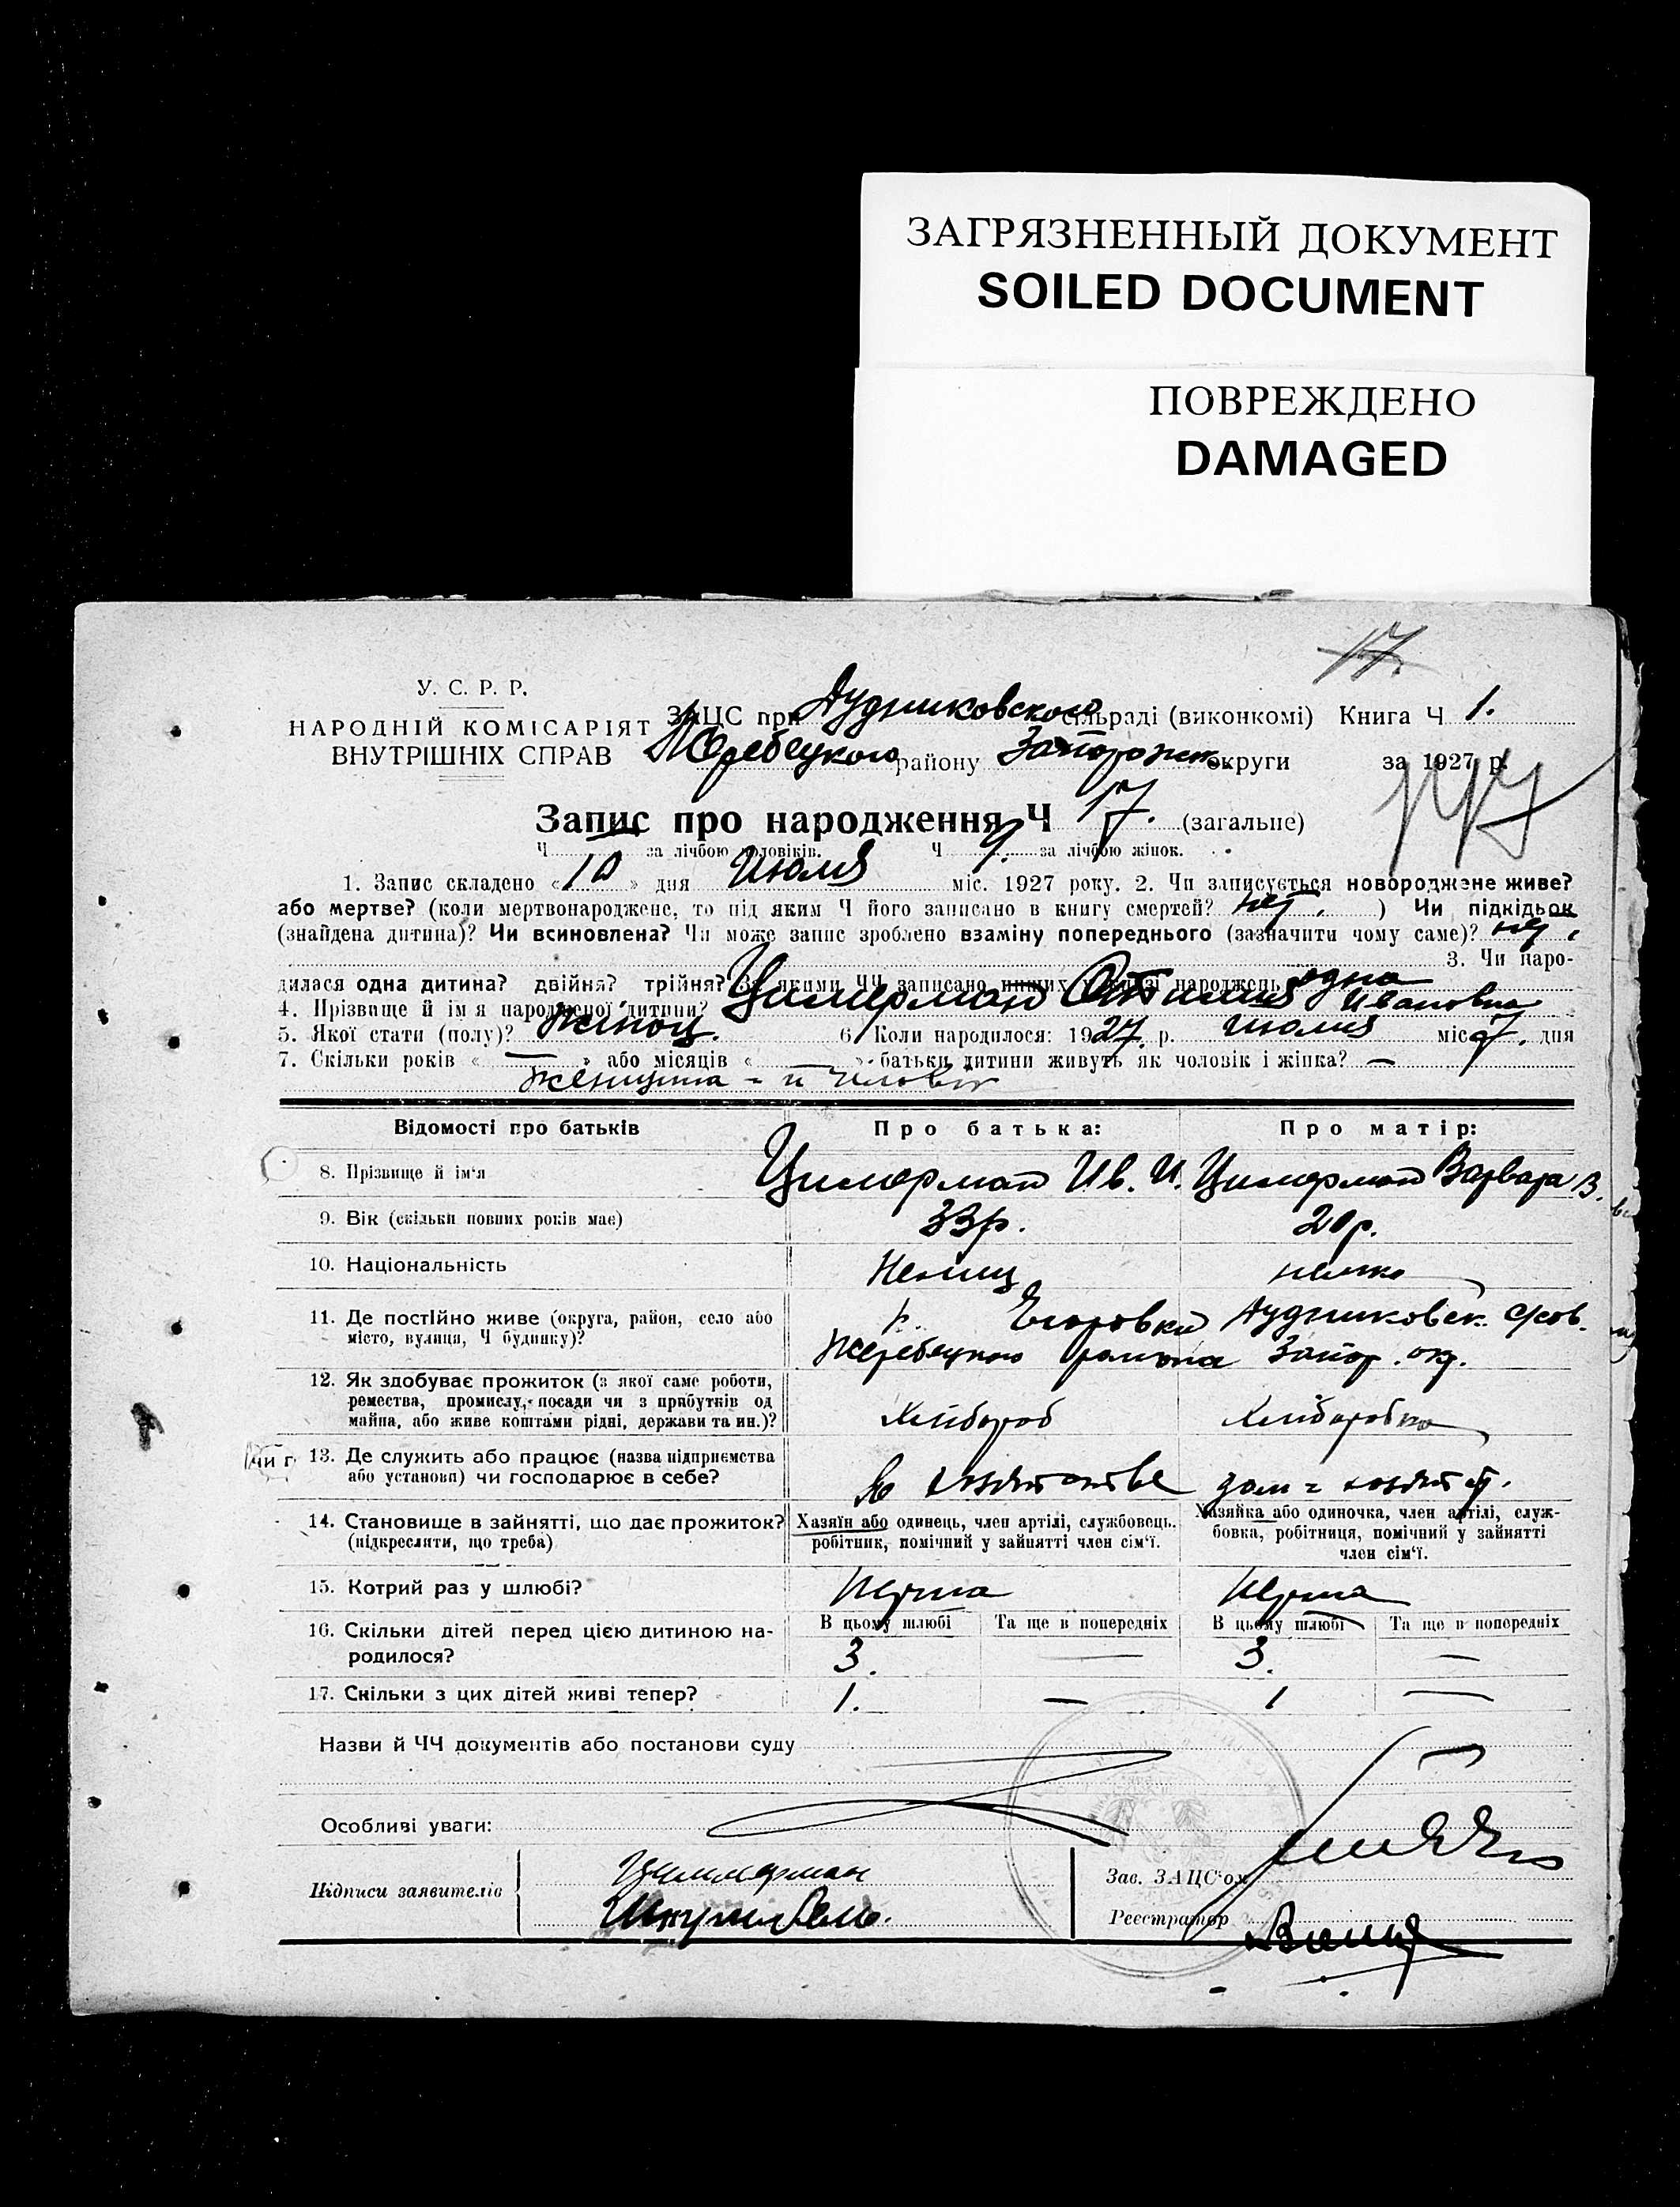 ЗАГРЯЗНЕННЫЙ ДОКУМЕНТ
SOILED DOCUMENT
ПОВРЕЖДЕНО
DAMAGED
17.
У. С. Р. Р.
НАРОДНІЙ КОМІСАРІЯТ
ВНУТРІШНІХ СПРАВ
ЗАЦС при Дудниковского сільраді (виконкомі) Книга Ч 1.
Жеребецкого району Запорожск. округи за 1927 р.
Запис про народження Ч 17. (загальне)
Ч за лічбою чоловіків. Ч 9. за лічбою жінок.
1. Запис складено « 10 » дня Июля міс. 1927 року. 2. Чи записується новороджене живе?
або мертве? (коли мертвонароджене, то під яким Ч його записано в книгу смертей? нет. ) Чи підкідьок
(знайдена дитина)? Чи всиновлена? Чи може запис зроблено взаміну попереднього (зазначити чому саме)? нет.
3. Чи наро-
дилася одна дитина? двійня? трійня? За якими ЧЧ записано инших у книзі народжень одна
4. Прізвище й ім'я народженої дитини? Цимерман Отилия Ивановна
5. Якої стати (полу)? Женск. 6. Коли народилося: 1927. р. Июлия міс. 7. дня
7. Скільки років « — » або місяців « » батьки дитини живуть як чоловік і жінка? —
Женщина - и человек
Відомості про батьків Про батька: Про матір:
8. Прізвище й ім'я Цимерман Ив. И. Цимерман Варвара В.
9. Вік (скільки повних років має) 33 р. 20 р.
10. Національність Немец немка
11. Де постійно живе (округа, район, село або
місто, вулиця, Ч будинку)?
Егоровка Дудниковск. с/сов.
Жеребецкого района Запор. окр.
12. Як здобуває прожиток (з якої саме роботи,
ремества, промислу, посади чи з прибутків од
майна, або живе коштами рідні, держави та ин.)?
Хлибороб Хлиборобка
13. Де служить або працює (назва підприємства
або установи) чи господарює в себе?
чи г
В хозяйстве дом = хозяйст.
14. Становище в зайнятті, що дає прожиток?
(підкреслити, що треба)
Хазяїн або одинець, член артілі, службовець.
робітник, помічний у зайнятті член сім'ї.
Хазяйка або одиночка, член артілі, служ-
бовка, робітниця, помічний у зайнятті
член сім'ї.
15. Котрий раз у шлюбі?
16. Скільки дітей перед цією дитиною на-
родилося?
В цьому шлюбі Та ще в попередніх В цьому шлюбі Та ще в попередніх
3. — 3. —
17. Скільки з цих дітей живі тепер? 1. — 1 —
Назви й ЧЧ документів або постанови суду
Особливі уваги:
Підписи заявителів Циммерман
Зав. ЗАЦС'ом
Реєстратор